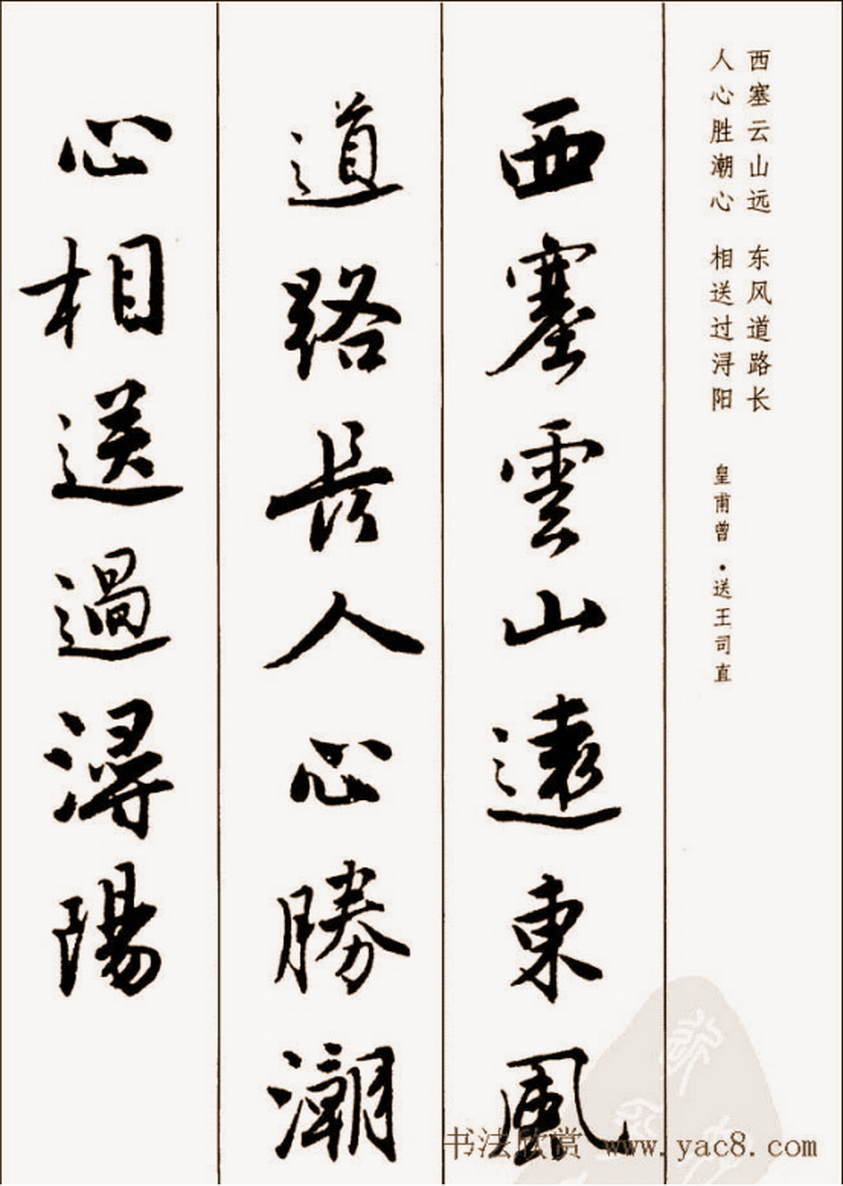 西塞云山远 东风道路长
人心胜潮心 相送过浔阳
皇甫曾·送王司直
西塞雲山遠東風
道路長人心勝潮
心相送過潯陽
书法欣赏 www.yac8.com